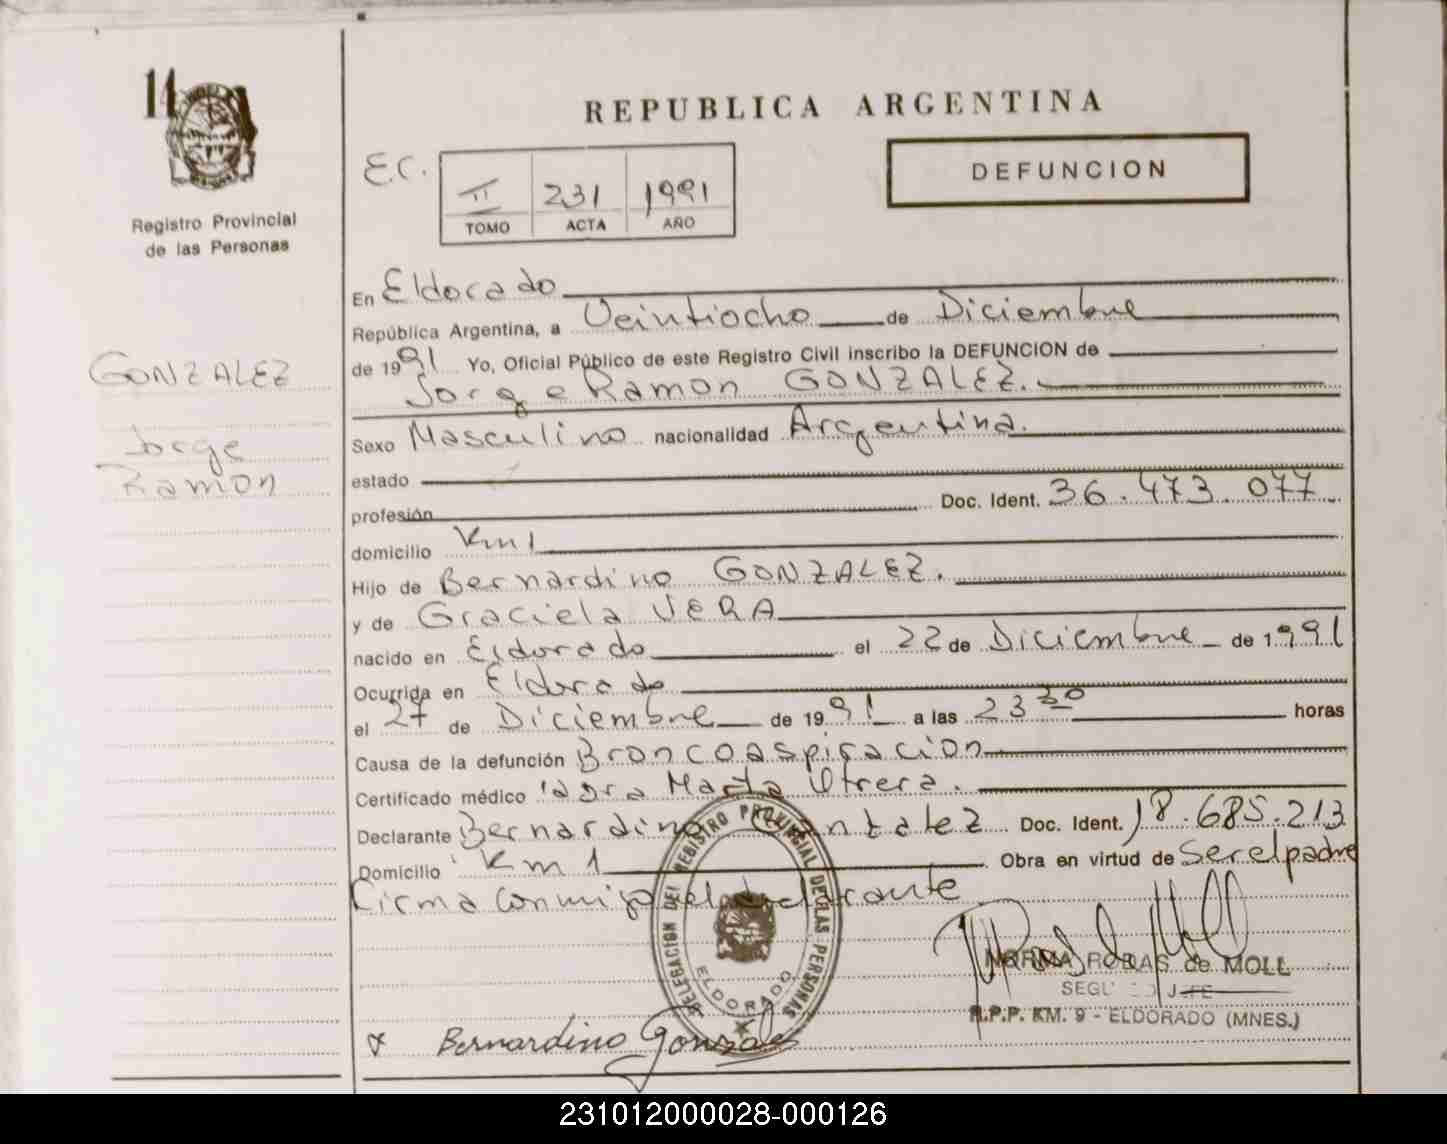 14
REPUBLICA ARGENTINA
DEFUNCION
E.C.
II 231 1991
TOMO ACTA AÑO
Registro Provincial
de las Personas
GONZALEZ
Jorge
Ramon
En Eldorado
República Argentina, a Veintiocho de Diciembre
de 1991 Yo, Oficial Público de este Registro Civil inscribo la DEFUNCION de
Jorge Ramon GONZALEZ.
Sexo Masculino nacionalidad Argentina.
estado
profesión Doc. Ident. 36.473.077
domicilio Km 1
Hijo de Bernardino GONZALEZ.
y de Graciela VERA
nacido en Eldorado el 22 de Diciembre de 1991
Ocurrida en Eldorado
el 27 de Diciembre de 1991 a las 23 30 horas
Causa de la defunción Broncoaspiracion
Certificado médico Dora Marta Utrera.
Declarante Bernardino Gonzalez Doc. Ident. 18.685.213
Domicilio Km 1 Obra en virtud de Ser el padre
Firma conmigo el declarante
DELEGACION DEL REGISTRO PROVINCIAL DE LAS PERSONAS
ELDORADO
NORMA ROBAS de MOLL
SEGUNDO JEFE
R.P.P. KM. 9 - ELDORADO (MNES.)
Bernardino Gonzales
231012000028-000126